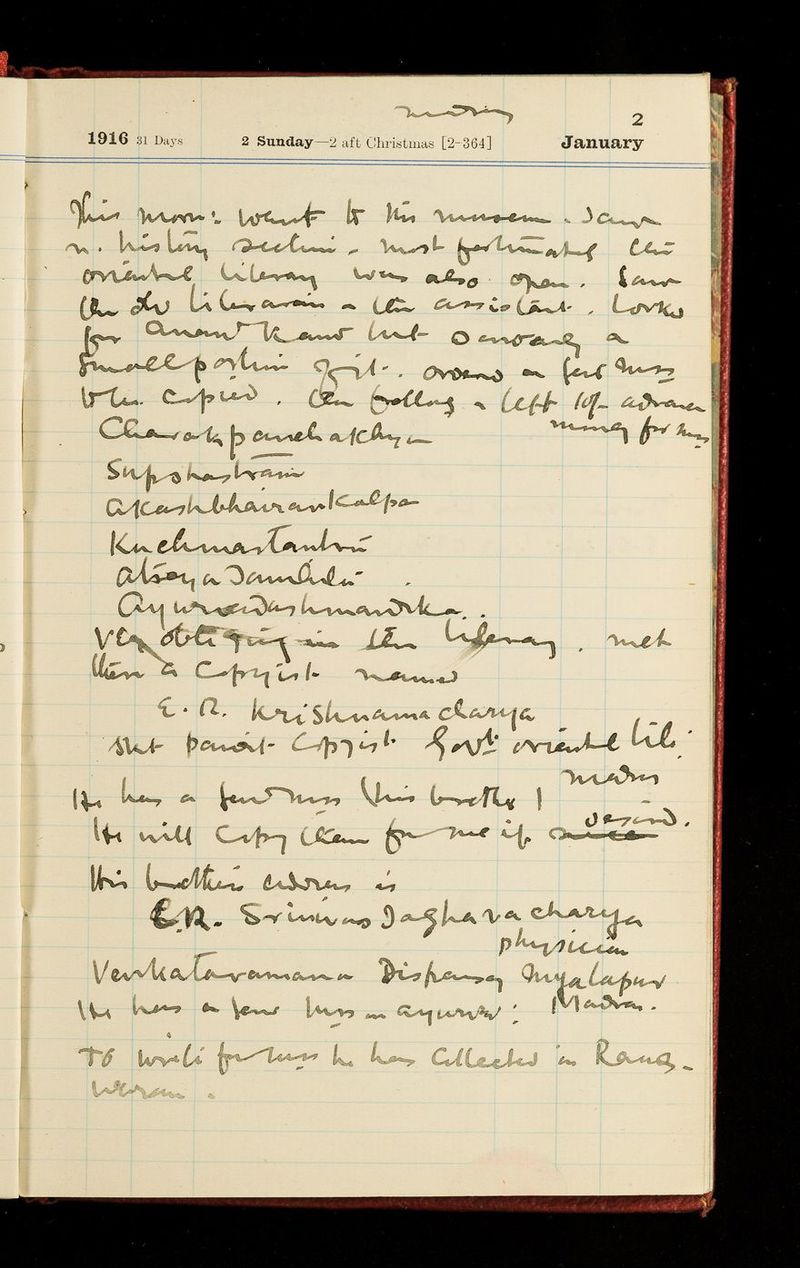 Madras
2
1916 31 Days 2 Sunday—2 aft Christmas [2-364] January
This morn: went to the museum. Saw
n. history section - most fortunately the
oriental library was also open. Saw
the librarian - the assistant. Looked
for Anand Kand but only a
small portion of it. ordered a few mss
to be copied. the following & left 10/- advance
money for mss
Charakpanchakhya
Supshastram
Akashbhairavkalpa
Kuchimartantru
Ayurvedashmandrka
Very obliging in the library, met
there a copyist named
E. R. Krishnamacharya
Skt Pandit Copyist Govt oriental Lib:
Madras
He has a few mss (his brother)
He will copy them for me if desired.
His brothers address is
E.R. Srinivas Raghavacharya
physician
Venkataramana Dispensary Myalapur
He has a few mss on ayurved: Madras.
To write for mss he has collected in